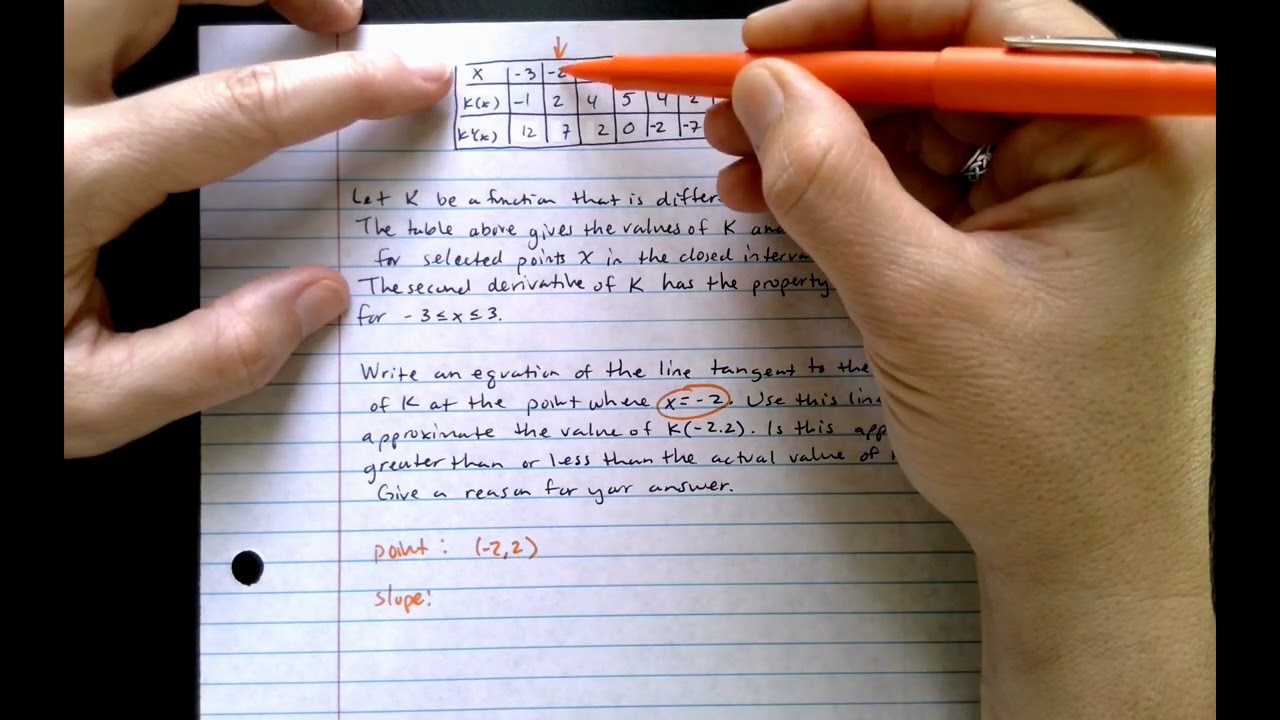 X | -3 | -2
K(x) | -1 | 2 | 4 | 5 | 4 | 2
K'(x) | 12 | 7 | 2 | 0 | -2 | -7
Let K be a function that is
The table above gives the values of K
for selected points X in the closed
The second derivative of K has the property
for -3 ≤ x ≤ 3.
Write an equation of the line tangent to the
of K at the point where x = -2. Use this
approximate the value of K(-2.2). Is this
greater than or less than the actual value of
Give a reason for your answer.
point: (-2,2)
slope: